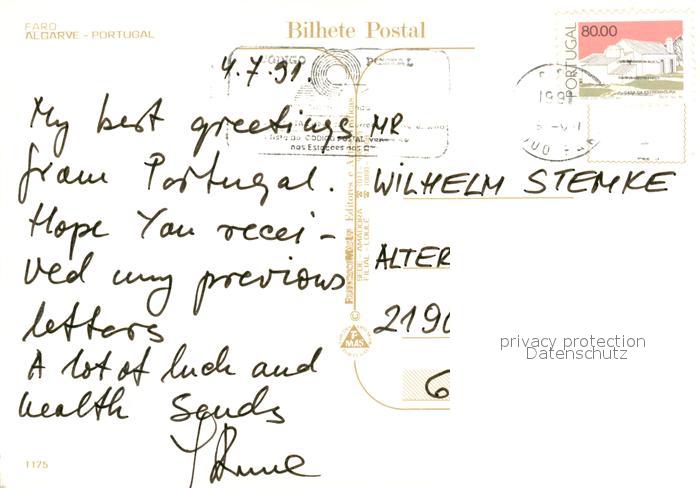 FARO
ALGARVE - PORTUGAL
Bilhete Postal
80.00
PORTUGAL
4.7.91.
CÓDIGO POSTAL
My best greetings
from Portugal.
Hope You recei-
ved my previous
letters
A lot of luck and
health Sends
MR
WILHELM STEMKE
ALTER
2190
6
nos Estações dos
SEDE - AMADORA
FILIAL - LOULÉ
privacy protection
Datenschutz
1175